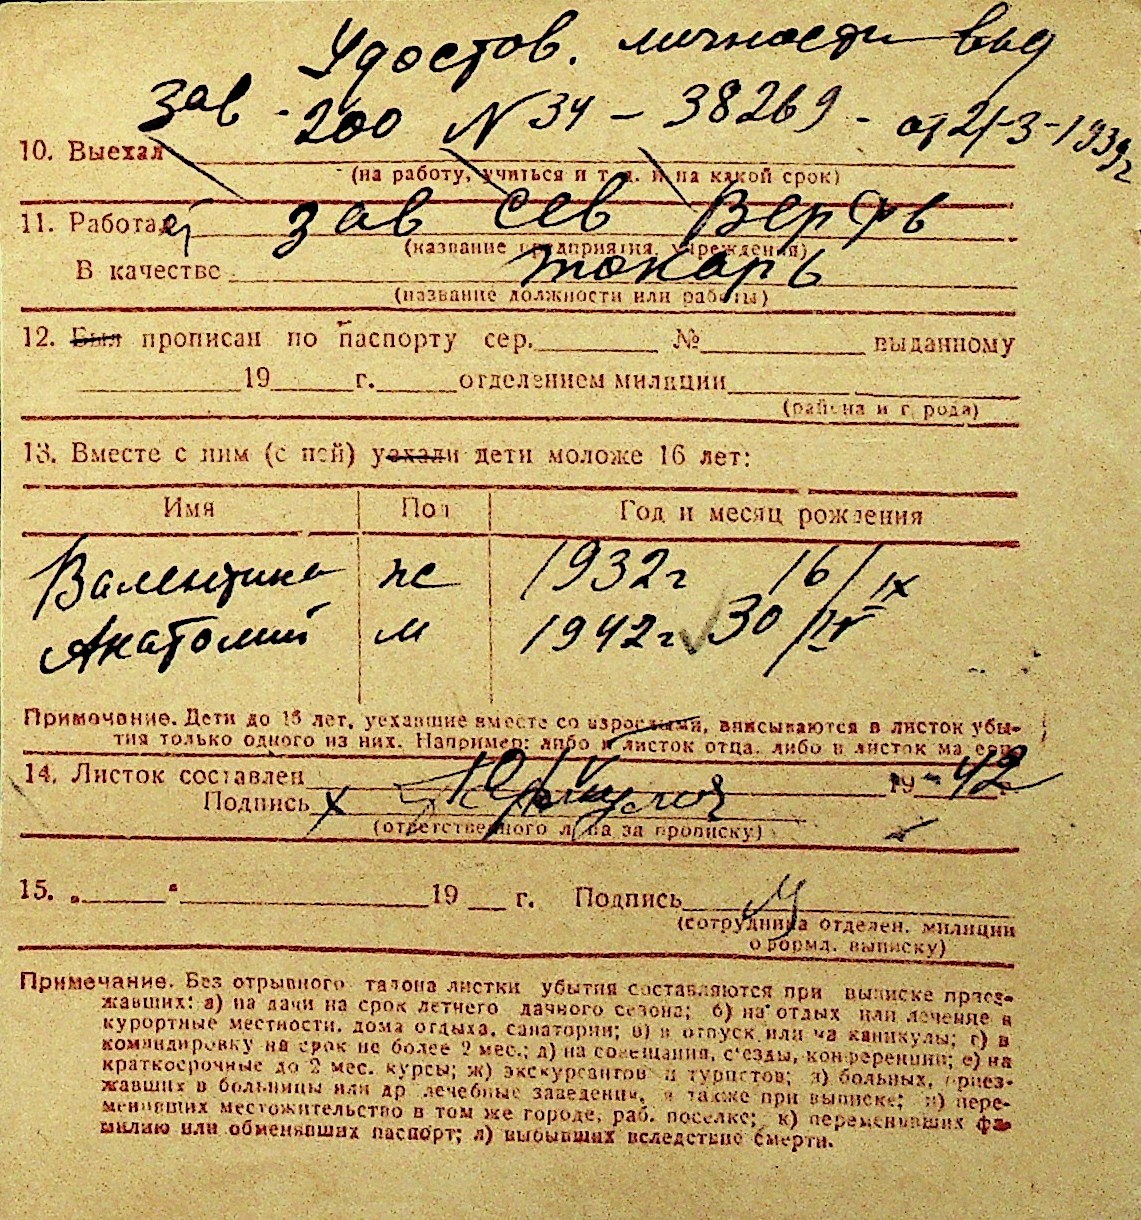 Удостов. личности выд
зав - 200 № 34 - 38269 - от 21-3-1939 г
10. Выехал
(на работу, учиться и т. д. и на какой срок)
11. Работает зав сев Верфь
(название предприятия, учреждения)
В качестве токарь
(название должности или работы)
12. Был прописан по паспорту сер. № выданному
19 г. отделением милиции
(района и города)
13. Вместе с ним (с ней) уехали дети моложе 16 лет:
Имя Пол Год и месяц рождения
Валентина ж 1932 г 16/IX
Анатолий м 1942 г 30/IV
Примечание. Дети до 16 лет, уехавшие вместе со взрослыми, вписываются в листок убы-
тия только одного из них. Например: либо в листок отца, либо в листок матери
14. Листок составлен 19 - 42
Подпись х
(ответственного лица за прописку)
15. „ “ 19 г. Подпись
(сотрудника отделен. милиции
оформл. выписку)
Примечание. Без отрывного талона листки убытия составляются при выписке приез-
жавших: а) на дачи на срок летчего дачного сезона; б) на отдых или лечение в
курортные местности, дома отдыха, санатории; в) в отпуск или на каникулы; г) в
командировку на срок не более 2 мес.; д) на совещания, съезды, конференции; е) на
краткосрочные до 2 мес. курсы; ж) экскурсантов и туристов; з) больных, приез-
жавших в больницы или др лечебные заведения, а также при выписке; и) пере-
менивших местожительство в том же городе, раб. поселке; к) переменивших фа-
милию или обменявших паспорт; л) выбывших вследствие смерти.